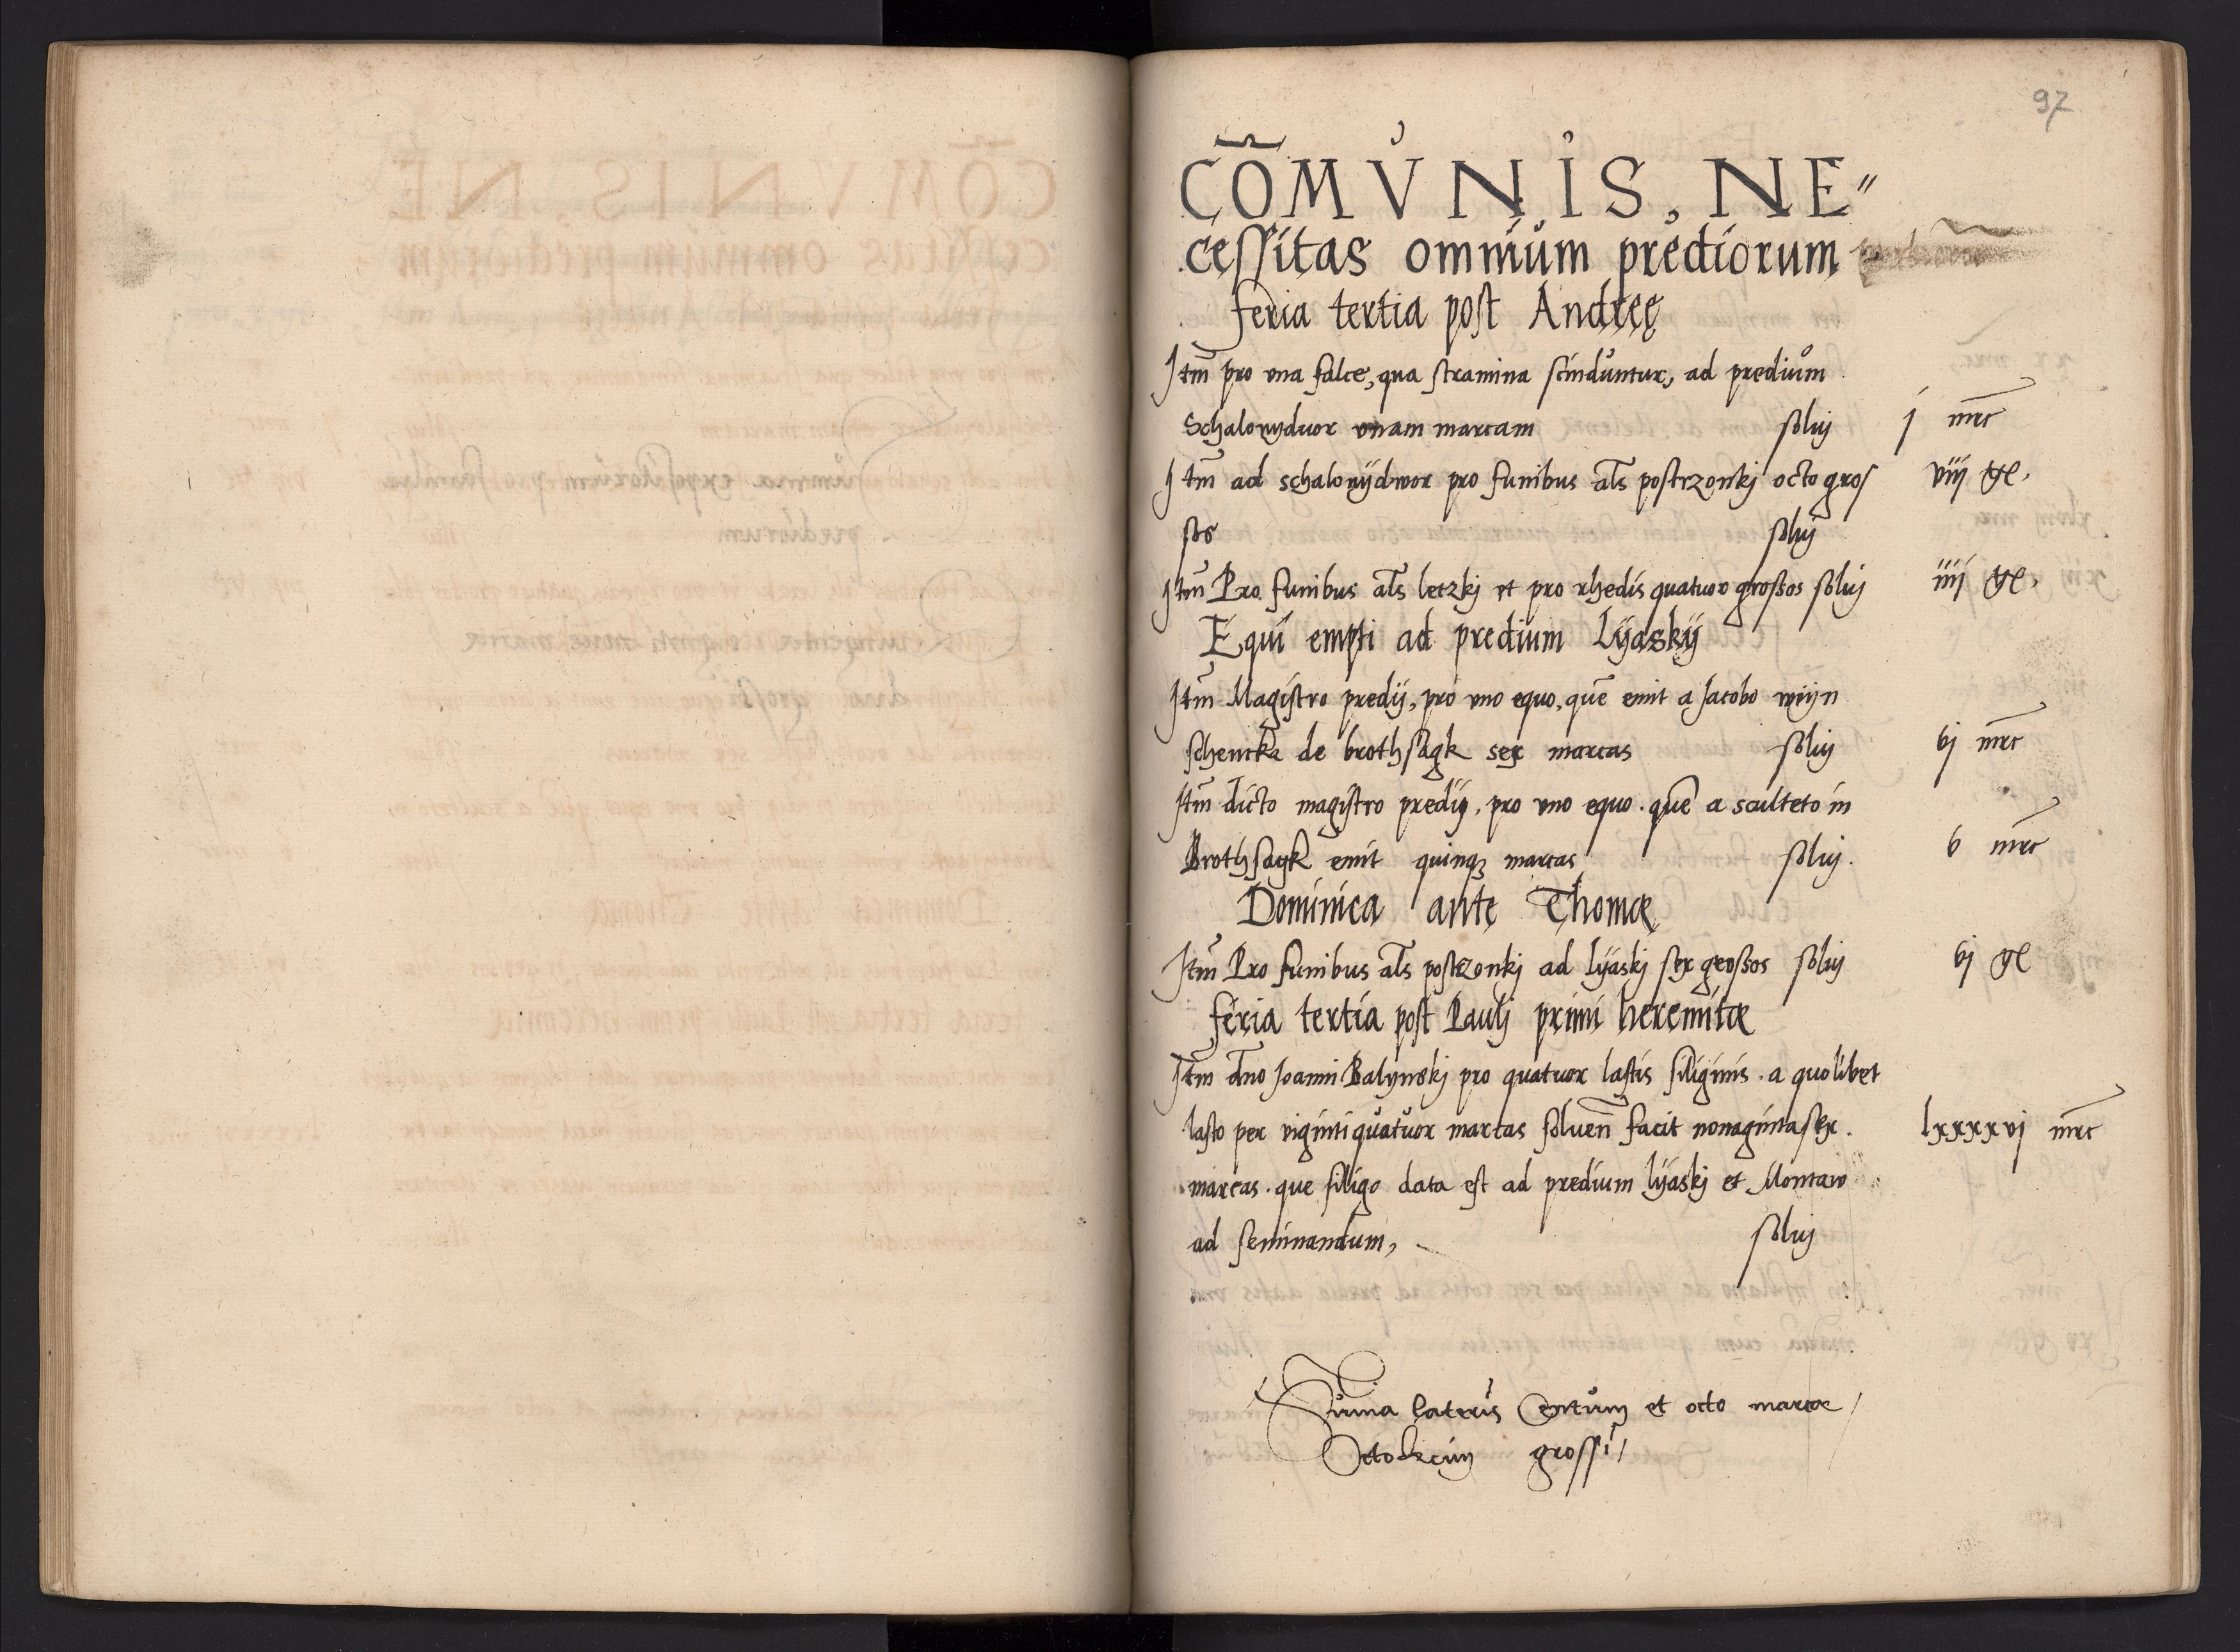 97
CŌMVNIS, NE"
cessitas omnium prediorum
feria tertia post Andreę
Itm̄ pro vna falce, qua stramina scinduntur, ad predium
Schalowydwor vnam marcam solui j mrc
Itm̄ ad schalowÿdwor pro funibus als postrzonkj octo gros viij gr,
sos soluj
Itm̄ Pro funibus als leczkj et pro rhedis quatuor grossos soluj iiij gr,
Equi empti ad predium Lÿaskÿ
Itm̄ Magistro predij, pro vno equo, quē emit a Jacobo wÿn
schencka de brothsagk sex marcas soluj vj mrc
Itm̄ dicto magistro predij, pro vno equo. quē a sculteto in
Brothsagk emit quinqꝫ marcas soluj. v mrc
Dominica ante Thomæ
Itm̄ Pro funibus als postrzonkj ad lÿaskj sex grossos soluj vj gr
feria tertia post Paulj primi heremitæ
Itm̄ dno Joanni Balynskj pro quatuor lastis siliginis. a quolibet
lasto per viginti quatuor marcas soluen̄ facit nonaginta sex. lxxxxvj mrc
marcas. que siligo data est ad predium lÿaskj et Montaw
ad seminandum, soluj
Suma̅ lateris Centum et octo marcæ /
Octodecim grossi /